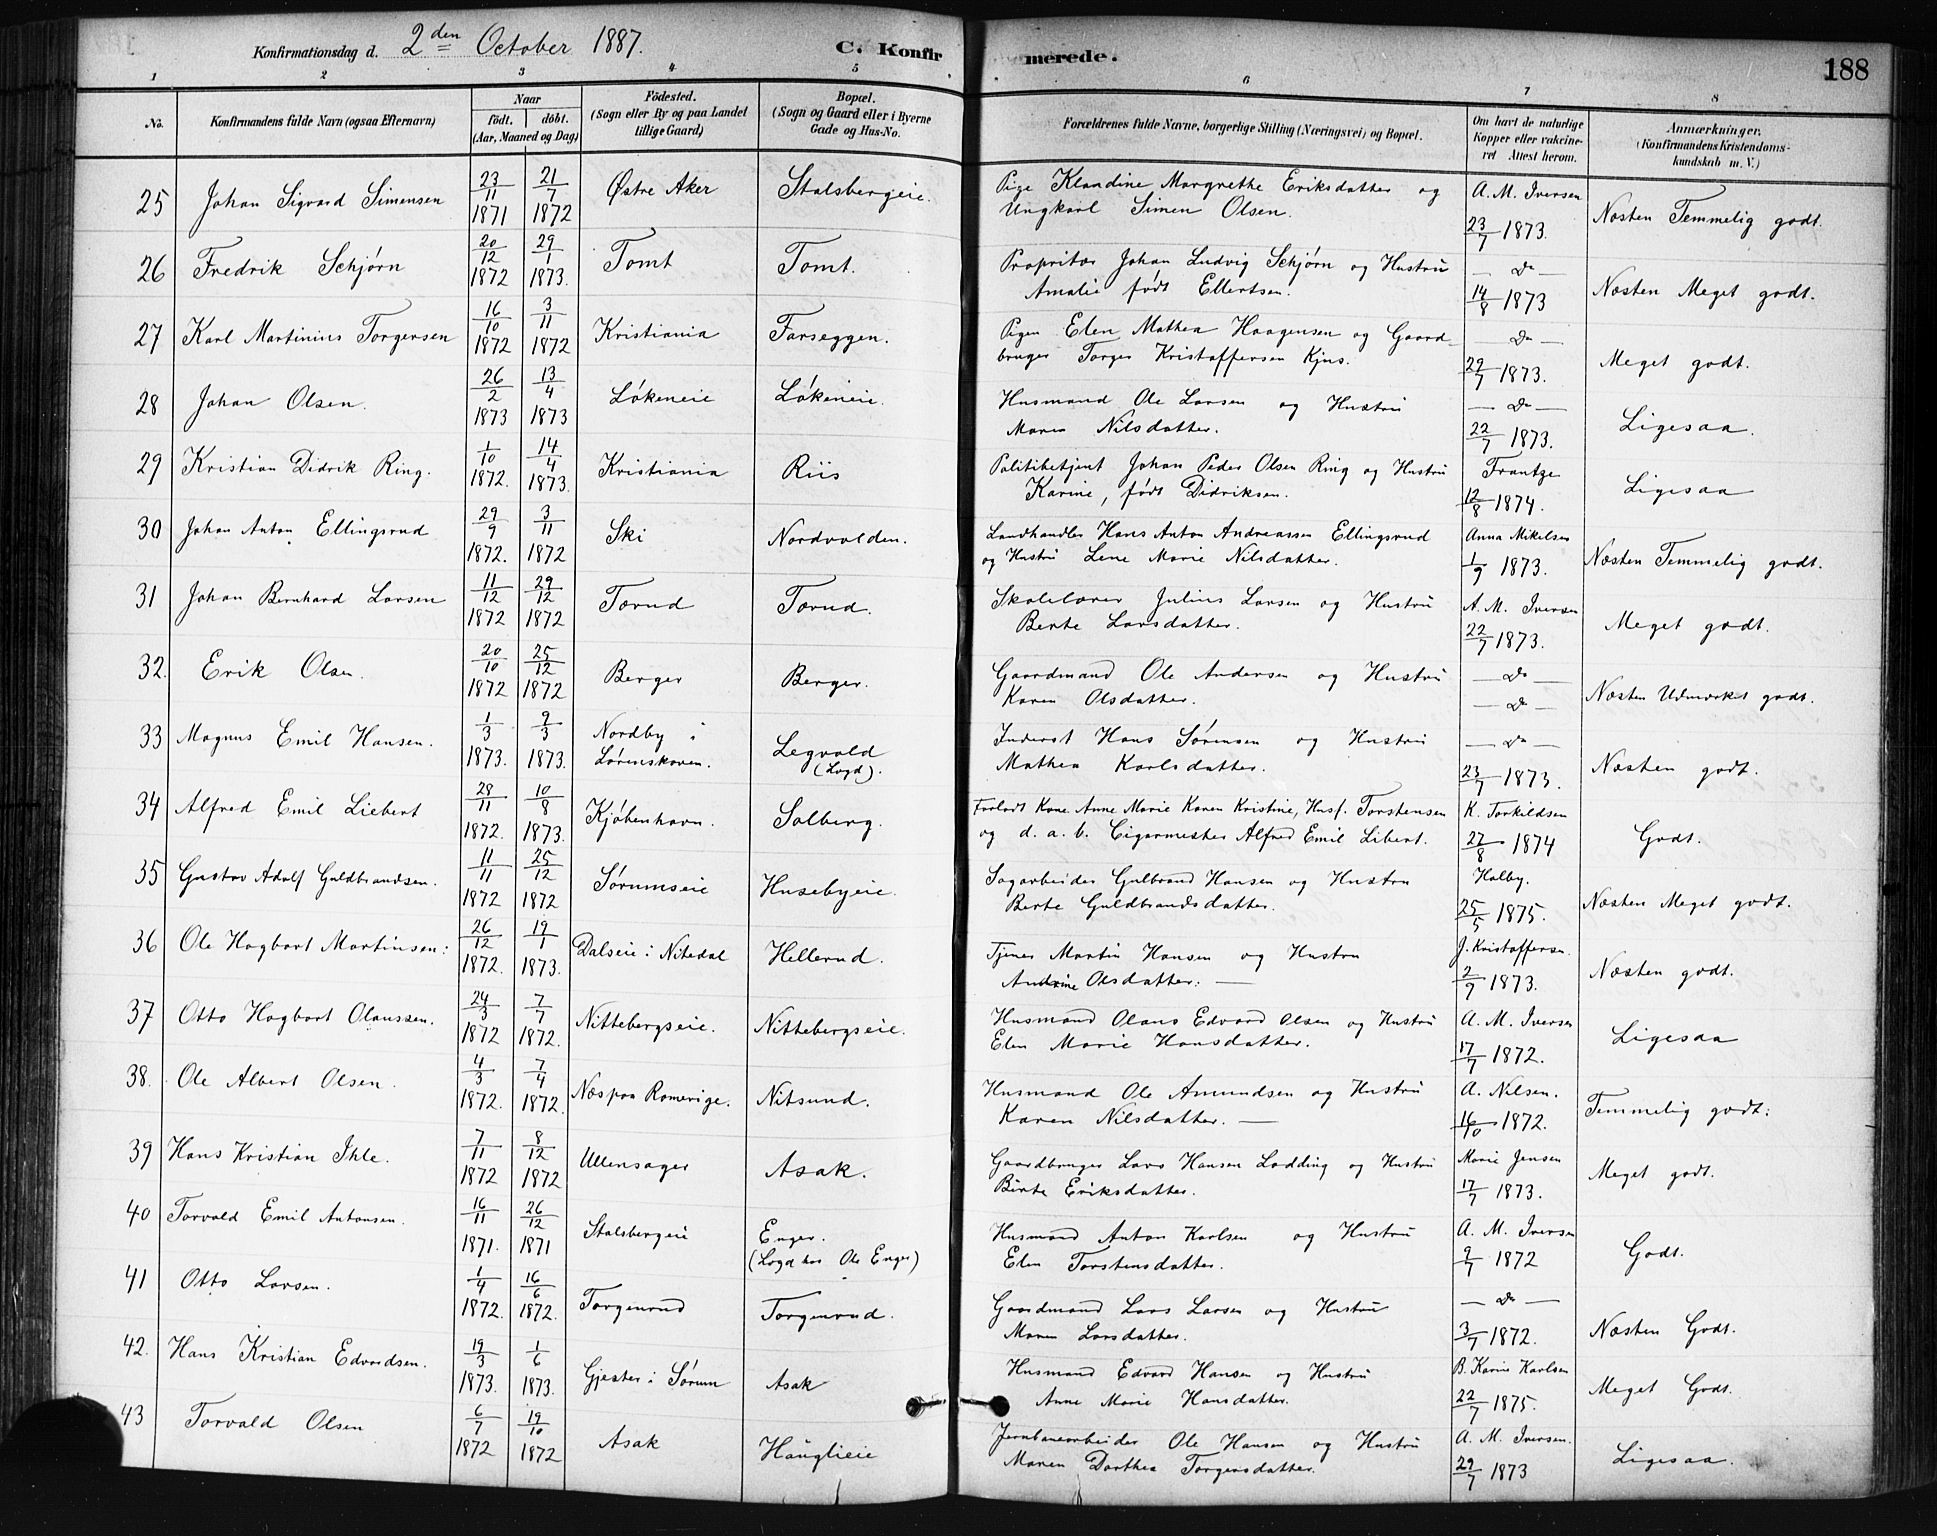 Konfirmationsdag d. 2den October 1887. C. Konfir merede. 188
1 2 3 4 5 6 7 8
No. Konfirmandens fulde Navn (ogsaa Efternavn) Naar født. døbt. (Aar, Maaned og Dag) Fødested. (Sogn eller By og paa Landet tillige Gaard) Bopæl. (Sogn og Gaard eller i Byerne Gade og Hus-No. Forældrenes fulde Navne, borgerlige Stilling (Næringsvei) og Bopæl. Om havt de naturlige Kopper eller vakcineret. Attest herom. Anmærkninger. (Konfirmandens Kristendomskundskab m. V.)
25 Johan Sigvard Simensen 23/11 1871 21/7 1872 Østre Aker Stalsbergeie. Pige Klaudine Margrethe Eriksdatter og A. M. Iversen
Ungkarl Simen Olsen. 23/7 1873. Næsten Temmelig godt.
26 Fredrik Schjørn 20/12 1872 29/1 1873. Tomt Tomt. Propritær Johan Ludvig Schjørn og Hustru — Do —
Amalie født Ellertsen. 14/8 1873 Næsten Meget godt.
27 Karl Martinius Torgersen 16/10 1872 3/11 1872 Kristiania Farseggen. Pigen Elen Mathea Haagensen og Gaard- — Do —
bruger Torger Kristoffersen Kjus. 29/7 1873. Meget godt.
28 Johan Olsen. 26/2 1873 13/4 1873 Løkeneie Løkeneie. Husmand Ole Larsen og Hustru — Do —
Maren Nilsdatter. 22/7 1873. Ligesaa.
29 Kristian Didrik Ring. 1/10 1872. 14/4 1873. Kristiania Riis Politibetjent Johan Peder Olsen Ring og Hustru Frantze
Karine, født Didriksen. 12/8 1874. Ligesaa
30 Johan Anton Ellingsrud 29/9 1872. 3/11 1872 Ski Nordvolden. Landhandler Hans Anton Andreassen Ellingsrud Anna Mikelsen
og Hustru Lene Marie Nilsdatter. 1/9 1873. Næsten Temmelig godt.
31 Johan Bernhard Larsen 11/12 1872 29/12 1872 Tærud Tærud. Skolelærer Julius Larsen og Hustru A. M. Iversen
Berte Larsdatter. 22/7 1873. Meget godt.
32. Erik Olsen. 20/10 1872 25/12 1872 Berger Berger. Gaardmand Ole Andersen og Hustru — Do —
Karen Olsdatter. — Do — Næsten Udmærket godt.
33 Magnus Emil Hansen. 1/3 1873. 9/3 1873. Nordby i Lørenskoven. Legvold (Logd). Inderst Hans Sørensen og Hustru — Do —
Mathea Karlsdatter. 23/7 1873. Næsten godt.
34 Alfred Emil Liebert 28/11 1872. 10/8 1873. Kjøbenhavn. Solberg. Forladt Kone Anne Marie Karen Kristine, Husf. Torstensen K. Torkildsen
og d. a. b. Cigarmester Alfred Emil Libert. 27/8 1874 Godt.
35 Gustav Adolf Guldbrandsen. 11/11 1872 25/12 1872 Sørumseie Husebyeie. Sagarbeider Gulbrand Hansen og Hustru Holby.
Berte Guldbrandsdatter. 25/5 1875. Næsten Meget godt.
36 Ole Hagbart Martinsen: 26/12 1872. 19/1 1873. Dalseie i Nitedal Hellerud. Tjener Martin Hansen og Hustru J. Kristoffersen.
Andrine Olsdatter. — 2/9 1873. Næsten godt.
37 Otto Hagbart Olaussen. 24/3 1872 7/7 1872. Nittebergseie. Nittebergseie. Husmand Olaus Edvard Olsen og Hustru A. M. Iversen
Elen Marie Hansdatter. 17/7 1872. Ligesaa
38. Ole Albert Olsen. 4/3 1872. 7/4 1872. Næs paa Romerige. Nitsund. Husmand Ole Amundsen og Hustru A. Nilsen.
Karen Nilsdatter. — 16/10 1872. Temmelig godt:
39 Hans Kristian Ihle. 7/11 1872 8/12 1872 Ullensager Asak. Gaardbruger Lars Hansen Lødding og Hustru Marie Jensen
Birte Eriksdatter. 17/7 1873. Meget godt.
40 Torvald Emil Antonsen. 16/11 1871. 26/12 1871 Stalsbergeie Enger. (Logd hos Ole Enger) Husmand Anton Karlsen og Hustru A. M. Iversen
Elen Torstensdatter. 9/7 1872 Godt.
41 Otto Larsen. 1/4 1872. 16/6 1872. Torgenrud Torgenrud. Gaardmand Lars Larsen og Hustru — Do —
Maren Larsdatter. 3/7 1872. Næsten Godt.
42. Hans Kristian Edvardsen. 19/3 1873. 1/6 1873. Gjester i Sørum Asak Husmand Edvard Hansen og Hustru B. Karine Karlsen
Anne Marie Hansdatter. 22/7 1875. Meget Godt.
43 Torvald Olsen 6/7 1872 19/10 1872 Asak Hauglieie Jernbanearbeider Ole Hansen og Hustru A. M. Iversen.
Maren Dorthea Torgersdatter. 29/7 1873 Ligesaa.